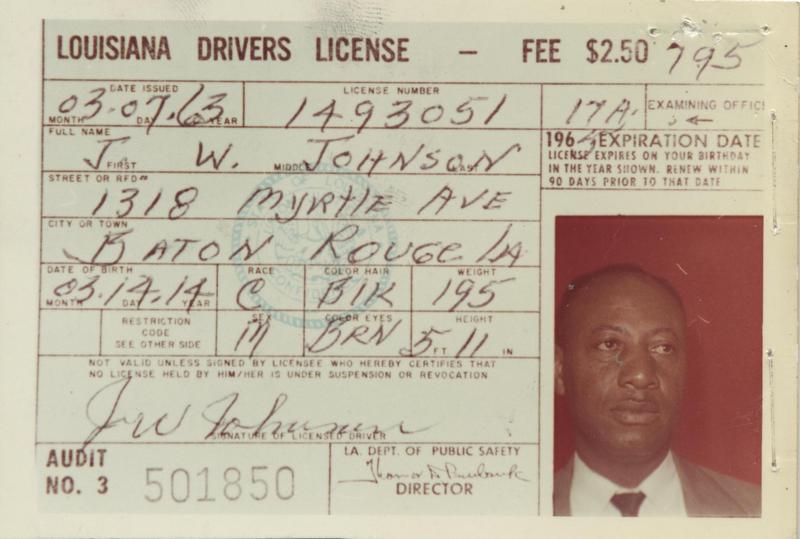 LOUISIANA DRIVERS LICENSE — FEE $2.50 795
DATE ISSUED
03.07.63
MONTH DAY YEAR
LICENSE NUMBER
1493051
17A.
EXAMINING OFFIC
FULL NAME
J. W. JOHNSON
FIRST MIDDLE LAST
1965 EXPIRATION DATE
LICENSE EXPIRES ON YOUR BIRTHDAY
IN THE YEAR SHOWN. RENEW WITHIN
90 DAYS PRIOR TO THAT DATE
STREET OR RFD
1318 MYRTLE AVE
CITY OR TOWN
BATON ROUGE LA
DATE OF BIRTH
03.14.14
MONTH DAY YEAR
RACE
C
COLOR HAIR
BlK
WEIGHT
195
RESTRICTION
CODE
SEE OTHER SIDE
SEX
M
COLOR EYES
BRN
HEIGHT
5 FT 11 IN
NOT VALID UNLESS SIGNED BY LICENSEE WHO HEREBY CERTIFIES THAT
NO LICENSE HELD BY HIM/HER IS UNDER SUSPENSION OR REVOCATION
J W Johnson
SIGNATURE OF LICENSED DRIVER
AUDIT
NO. 3
501850
LA. DEPT. OF PUBLIC SAFETY
DIRECTOR